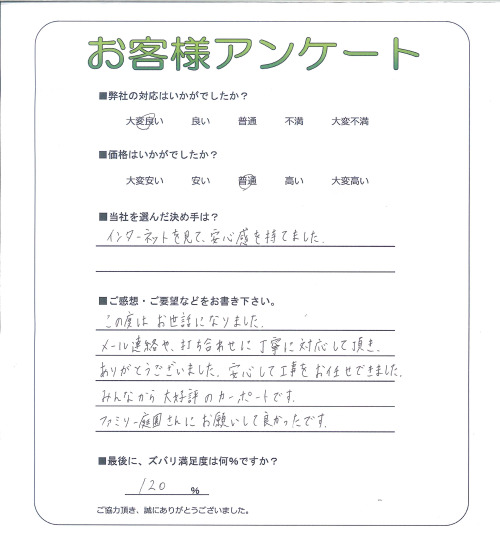 お客様アンケート
■弊社の対応はいかがでしたか？
大変良い 良い 普通 不満 大変不満
■価格はいかがでしたか？
大変安い 安い 普通 高い 大変高い
■当社を選んだ決め手は？
インターネットを見て、安心感を持てました.
■ご感想・ご要望などをお書き下さい。
この度は お世話になりました.
メール連絡や、打ち合わせに丁寧に対応して頂き.
ありがとうございました. 安心して工事をお任せできました.
みんなから 大好評のカーポートです.
ファミリー庭園さんにお願いして良かったです.
■最後に、ズバリ満足度は何%ですか？
120 %
ご協力頂き、誠にありがとうございました。